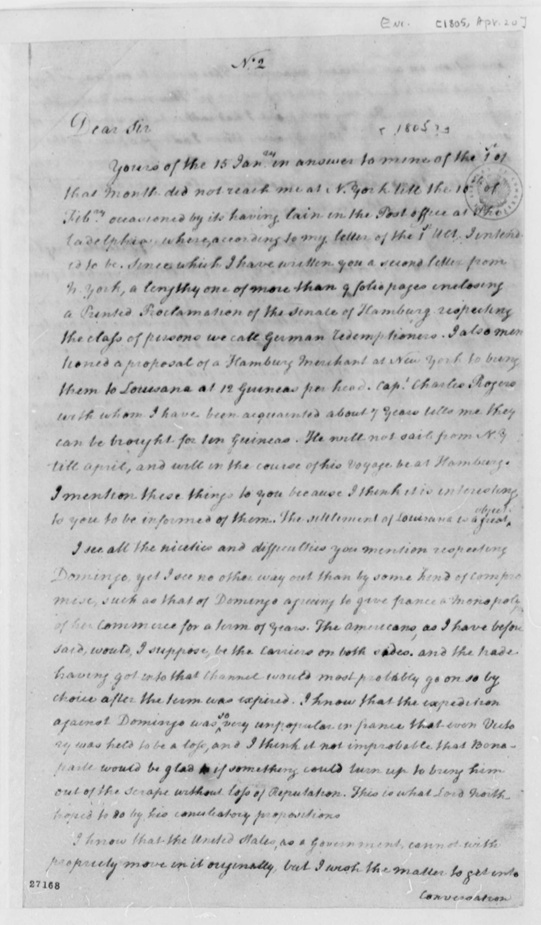 Enr. [1805, Apr. 20]
No. 2
Dear Sir
[1805?]
Yours of the 15 Jany. in answer to mine of the 1st of
that month did not reach me at N. York till the 10th of
Feby. occasioned by its having lain in the Post office at Phi
ladelphia where, according to my letter of the 1st Ult, I intend
ed to be. Since which I have written you a second letter from
N. York, a lengthy one of more than 9 folio pages inclosing
a Printed Proclamation of the Senate of Hamburg respecting
the class of persons we call German Redemptioners. I also men
tioned a proposal of a Hamburg Merchant at New York to bring
them to Louisana at 12 Guineas per head. Capt. Charles Rogers
with whom I have been acquainted about 7 Years tells me they
can be brought for ten Guineas. He will not sail from N.Y
till April, and will in the course of his Voyage be at Hamburg.
I mention these things to you because I think it is interesting
to you to be informed of them. The settlement of Louisana is a great object
I see all the niceties and difficulties you mention respecting
Domingo, yet I see no other way out than by some kind of compro
mise, such as that of Domingo agreeing to give france a Monopoly
of her Commerce for a term of Years. The Americans, as I have before
said, would, I suppose, be the carriers on both sides. and the trade
having got into that Channel would most probably go on so by
choice after the term was expired. I know that the expedition
against Domingo was so very unpopular in france that even Victo
ry was held to be a loss, and I think it not improbable that Bona-
parte would be glad if something could turn up to bring him
out of the scrape without loss of Reputation. This is what Lord North
hoped to do by his conciliatory propositions
I know that the United States, as a Government, cannot with
propriety move in it originally, but I wish the matter to get into
Conversation
27168